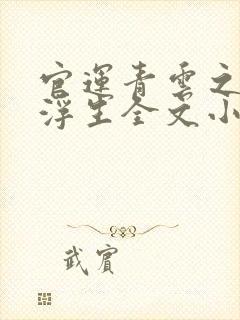 官運青雲之
浮生全文小
武賓